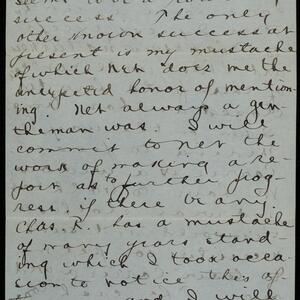 seems to be a
success. The only
other known success at
present is my mustache
of which Net does me the
unexpected honor of mention-
ing. Net always a gen-
tleman was. I will
commit to Net the
work of making a re-
port as to further prog-
ress, if there be any.
Chas. R. has a mustache
of many years stand-
ing which I took occa-
sion to notice this af-
and I will